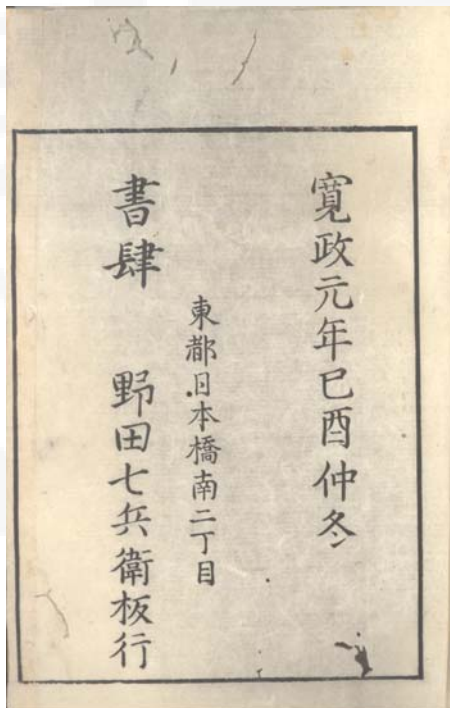 寛政元年己酉仲冬
東都日本橋南二丁目
書肆 野田七兵衛板行